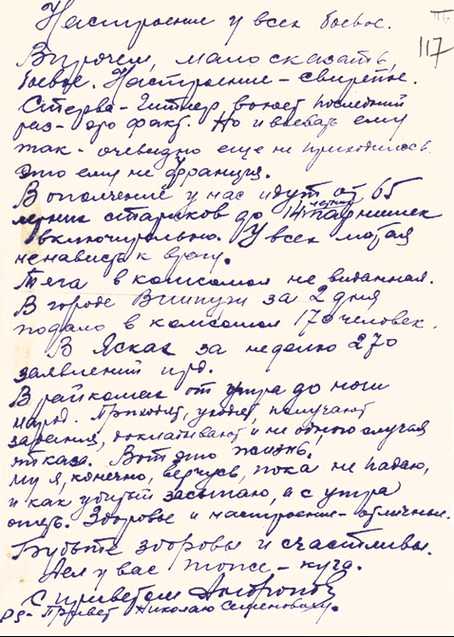 Настроение у всех боевое.
117
Впрочем, мало сказать,
боевое. Настроение – свирепое.
Стерва – Гитлер воюет последний
раз – это факт. Но и воевать ему
так – очевидно еще не приходилось.
Это ему не Франция.
В ополчение у нас идут от 65
летних стариков до 14 летних парнишек
включительно. У всех лютая
ненависть к врагу.
Тяга в комсомол не виданная.
В городе за 2 дня
подало в комсомол 170 человек.
В за неделю 270
заявлений
В райкомах от утра до ночи
народ. Приходят, уходят, получают
задания, докладывают и не одного случая
отказа. Вот это жизнь.
Ну я, конечно, верчусь, пока не падаю,
и как убитый засыпаю, а с утра
опять. Здоровье и настроение – отличные.
Будьте здоровы и счастливы.
Дел у вас тоже – куча.
С приветом Андропов
PS – Привет Николаю